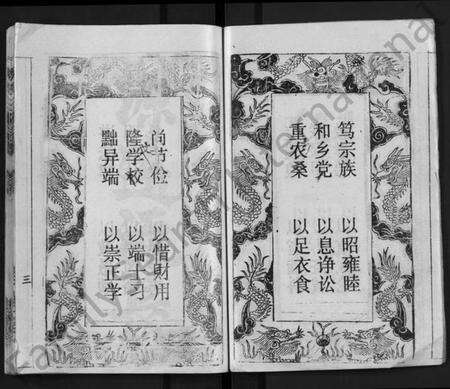 笃宗族 以昭雍睦
和乡党 以息诤讼
重农桑 以足衣食
尚节俭 以惜財用
隆学校 以端士习
黜异端 以崇正学
三